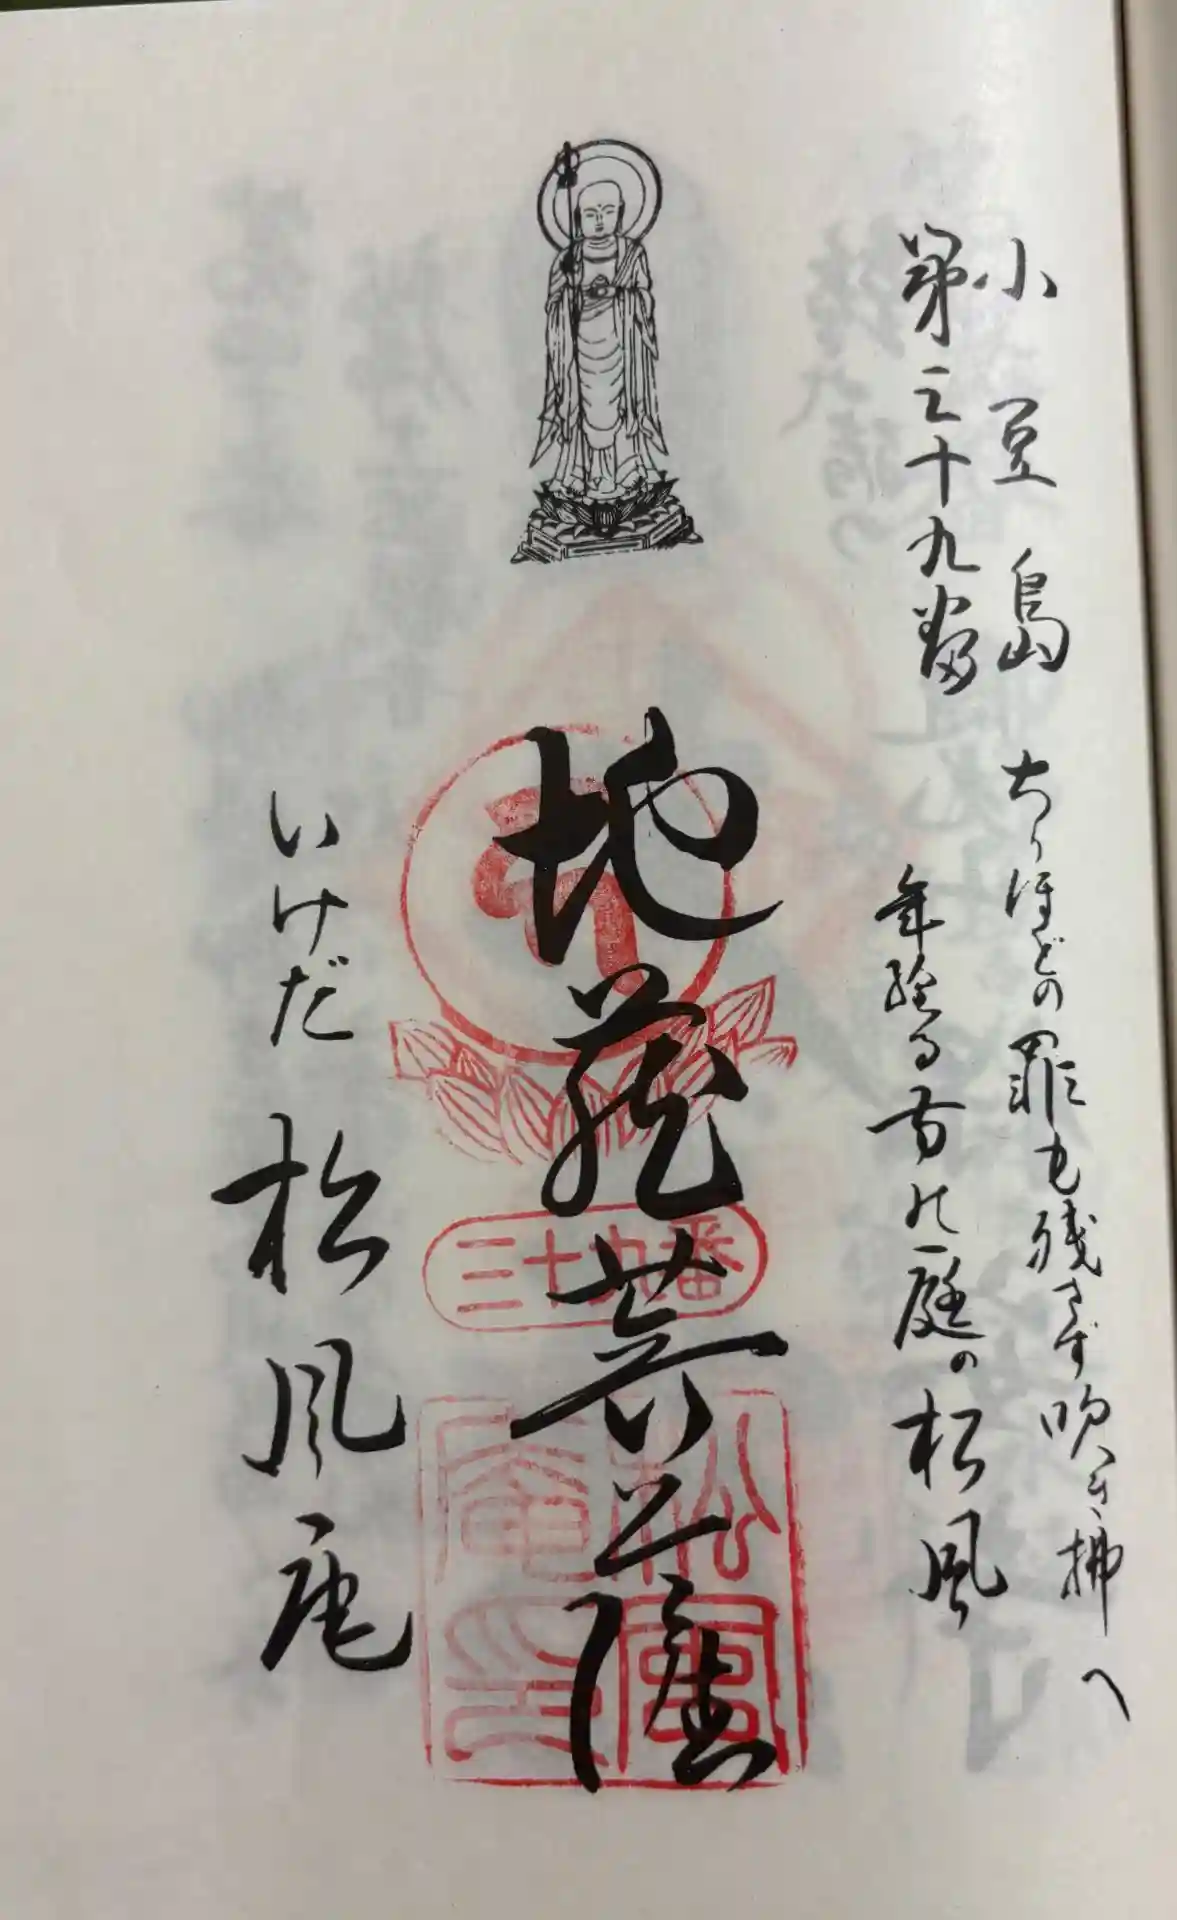 小豆島
第三十九番
ちりほどの罪も残さず吹き拂へ
年経る寺の庭の松風
地蔵菩薩
三十九番
松風庵印
いけだ 松風庵